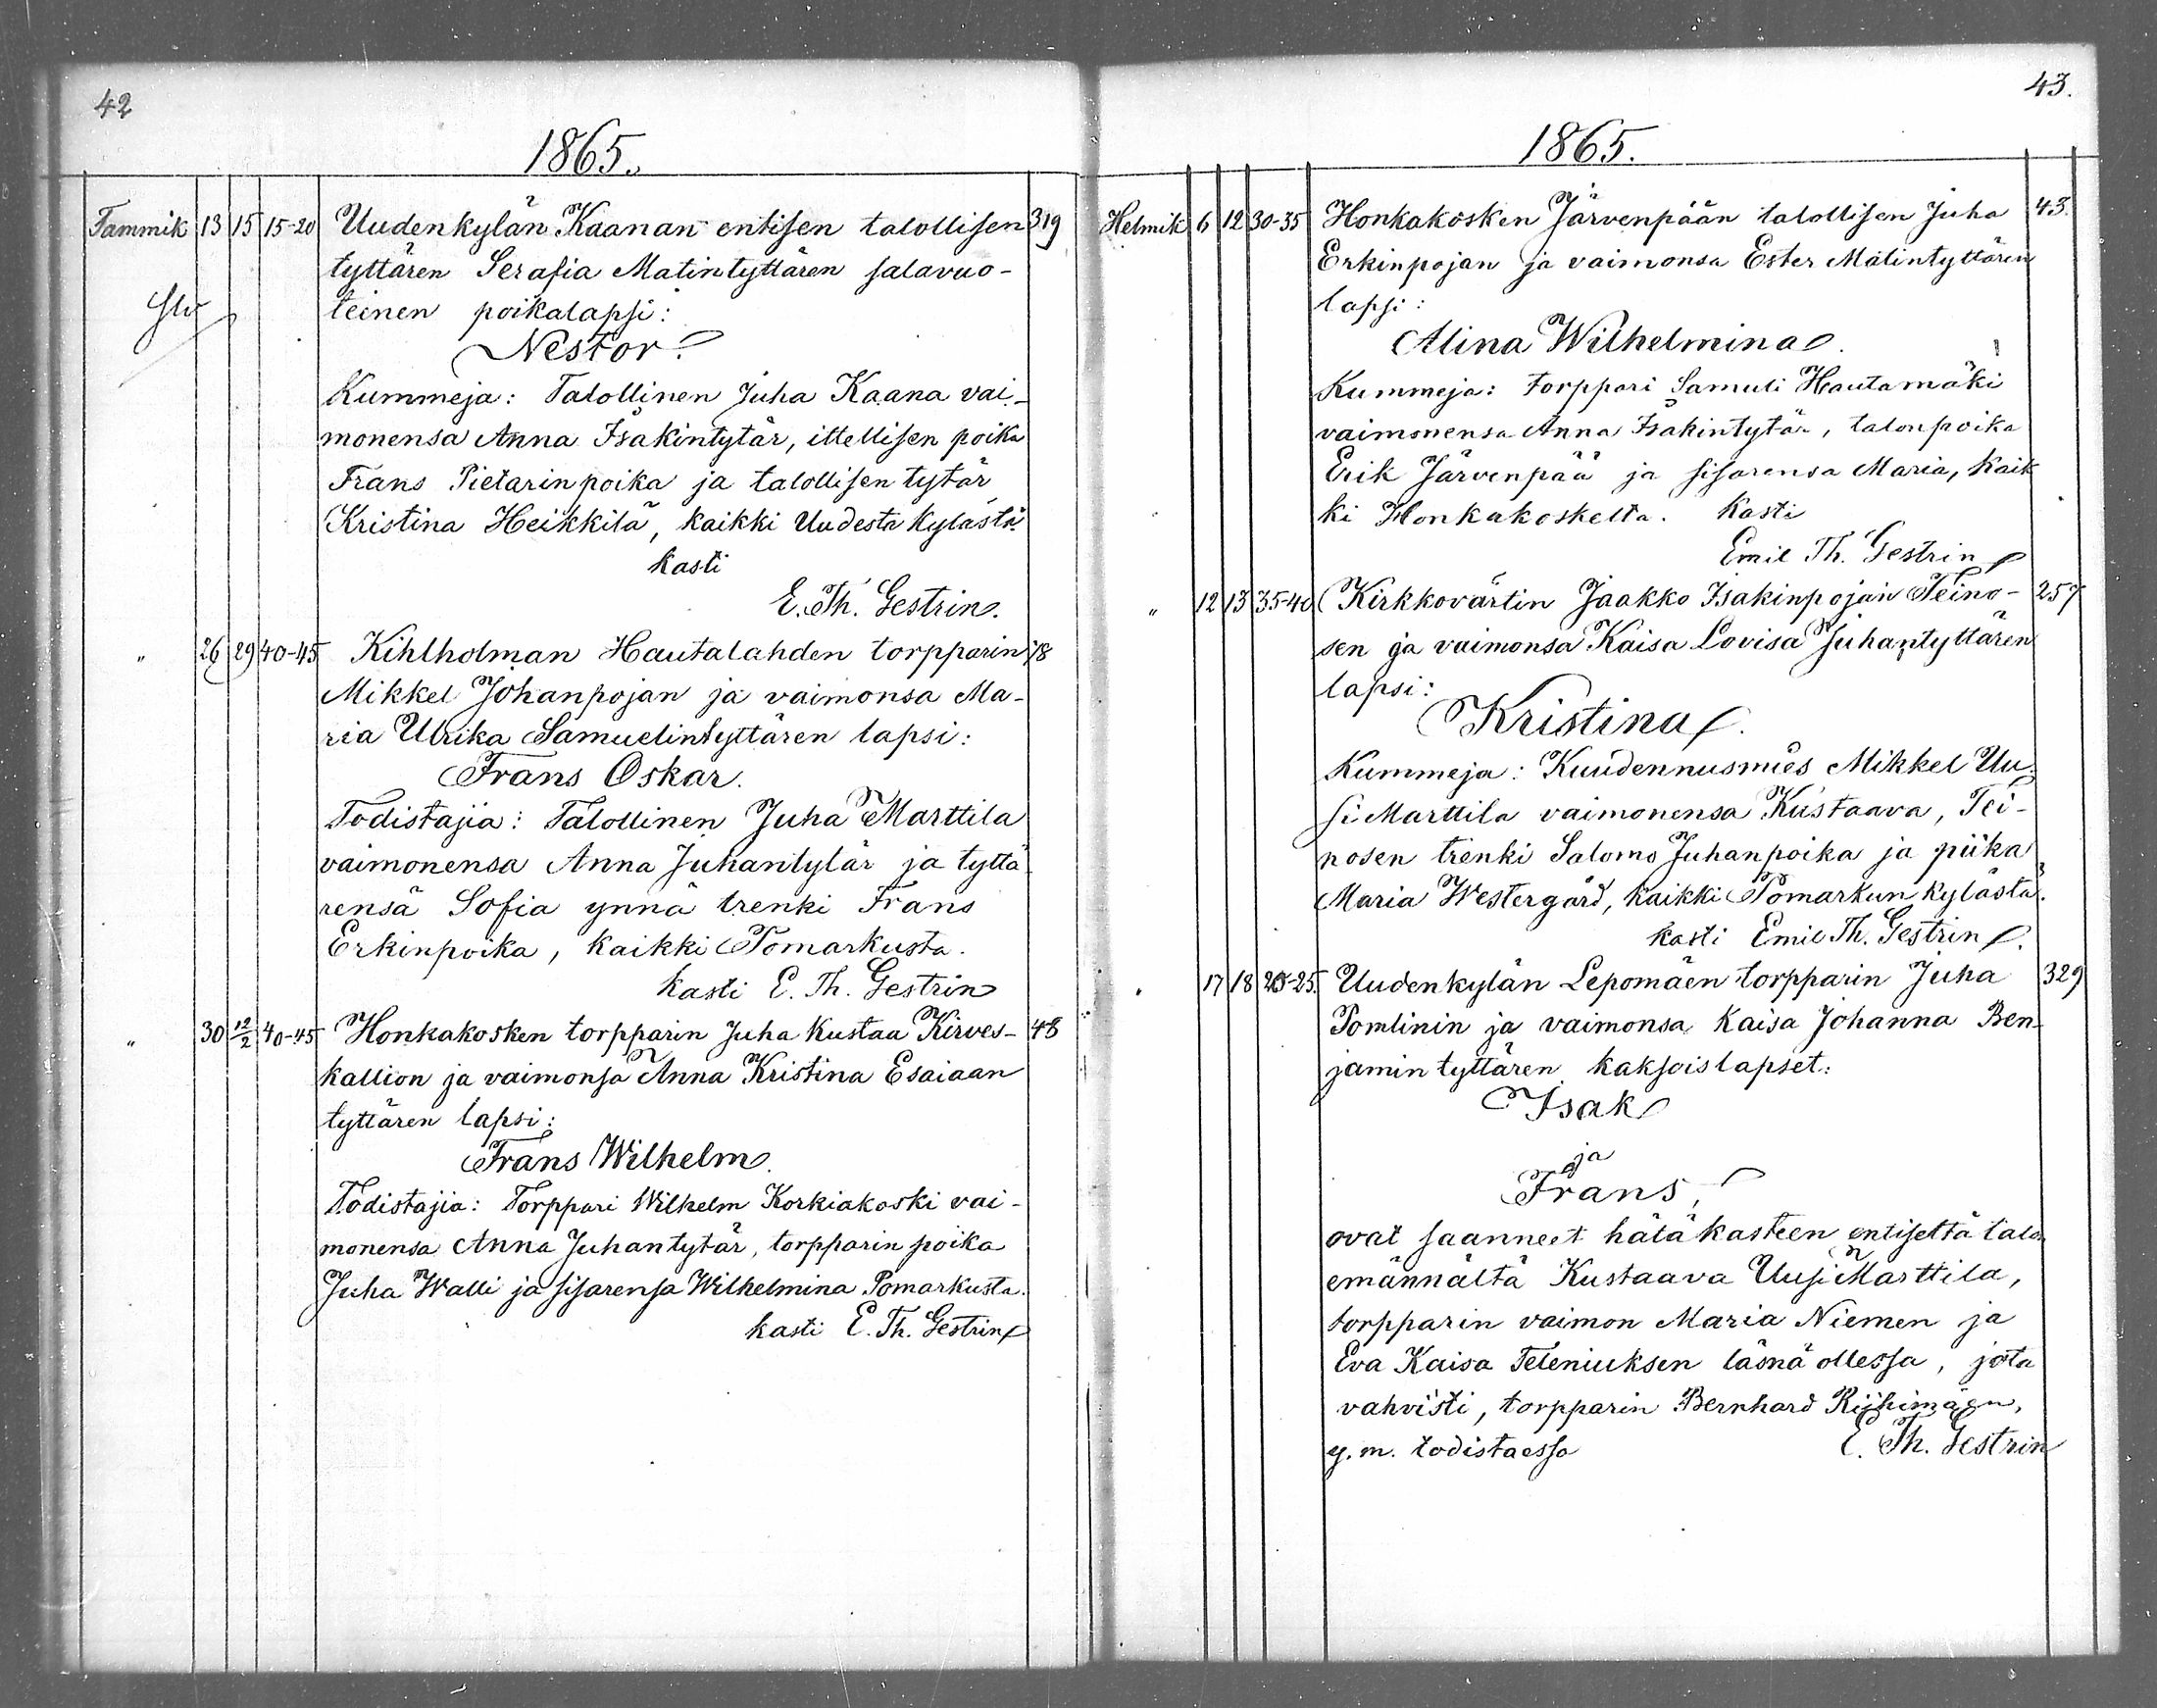 42
1865.
Tammik 13 15 15-20 Uudenkylän Kaanan entisen talollisen 319
tyttären Serafia Matintyttären salavuo-
teinen poikalapsi:
Nestor.
Kummeja: Talollinen Juha Kaana vai-
monensa Anna Isakintytär, ittellisen poika
Frans Pietarinpoika ja talollisen tytär
Kristina Heikkilä, kaikki Uudesta kylästä.
kasti
E. Th. Gestrin.
" 26 29 40-45 Kihlholman Hautalahden torpparin 78
Mikkel Johanpojan ja vaimonsa Ma-
ria Ulrika Samuelintyttären lapsi:
Frans Oskar.
Todistajia: Talollinen Juha Marttila
vaimonensa Anna Juhantytär ja tyttä
rensä Sofia ynnä trenki Frans
Erkinpoika, kaikki Pomarkusta.
kasti E. Th. Gestrin
" 30 12/2 40-45 Honkakosken torpparin Juha Kustaa Kirves- 48
kallion ja vaimonsa Anna Kristina Esaiaan
tyttären lapsi:
Frans Wilhelm.
Todistajia: Torppari Wilhelm Korkiakoski vai-
monensa Anna Juhantytär, torpparin poika
Juha Walli ja sisarensa Wilhelmina Pomarkusta.
kasti E. Th. Gestrin
43.
1865.
Helmik 6 12 30-35 Honkakosken Järvenpään talollisen Juha 43.
Erkinpojan ja vaimonsa Ester Matintyttären
lapsi:
Alina Wilhelmina.
Kummeja: torppari Samuli Hautamäki
vaimonensa Anna Isakintytär, talonpoika
Erik Järvenpää ja sisarensa Maria, kaik
ki Honkakoskelta. Kasti
Emil Th. Gestrin
" 12 13 35-40 Kirkkovärtin Jaakko Isakinpojan Teino- 257
sen ja vaimonsa Kaisa Lovisa Juhantyttären
lapsi:
Kristina.
Kummeja: Kuudennusmies Mikkel Uu
si Marttila vaimonensa Kustaava, Tei-
nosen trenki Salomo Juhanpoika ja piika
Maria Westergård, kaikki Pomarkun kylästä.
kasti Emil Th. Gestrin.
" 17 18 20-25. Uudenkylän Lepomäen torpparin Juha 329
Tomlinin ja vaimonsa Kaisa Johanna Ben-
jamin tyttären kaksoislapset:
Isak
ja
Frans,
ovat saanneet hätäkasteen entiseltä talon
emännältä Kustaava Uusi Marttila,
torpparin vaimon Maria Niemen ja
Eva Kaisa Teleniuksen läsnä ollessa, jota
vahvisti, torpparin Bernhard Riihimäen,
y. m. todistaessa E. Th. Gestrin